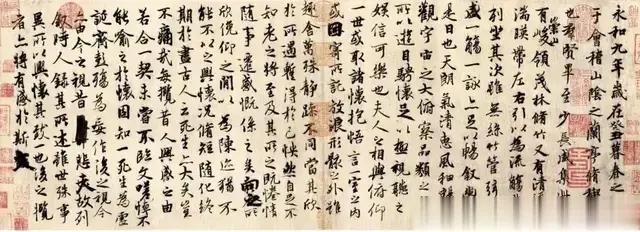 永和九年歲在癸丑暮春之
于會稽山陰之蘭亭脩稧
也羣賢畢至少長咸集此
有崇山峻領茂林脩竹又有清
湍暎帶左右引以為流觴
列坐其次雖無絲竹管弦
盛一觴一詠亦足以暢叙幽
是日也天朗氣清惠風和暢
觀宇宙之大俯察品類之
所以遊目騁懷足以極視聽之
娛信可樂也夫人之相與俯仰
一世或取諸懷抱悟言一室之内
或因寄所託放浪形骸之外雖
趣舍萬殊靜躁不同當其欣
於所遇蹔得於己怏然自足不
知老之將至及其所之既惓情
隨事遷感慨係之矣向之所
欣俛仰之閒以為陳迹猶不
能不以之興懷況脩短隨化終
期於盡古人云死生亦大矣豈
不痛哉每攬昔人興感之由
若合一契未嘗不臨文嗟悼不
能喻之於懷固知一死生為虛
誕齊彭殤為妄作後之視今
亦由今之視昔悲夫故列
叙時人錄其所述雖世殊事
異所以興懷其致一也後之攬
者亦將有感於斯文